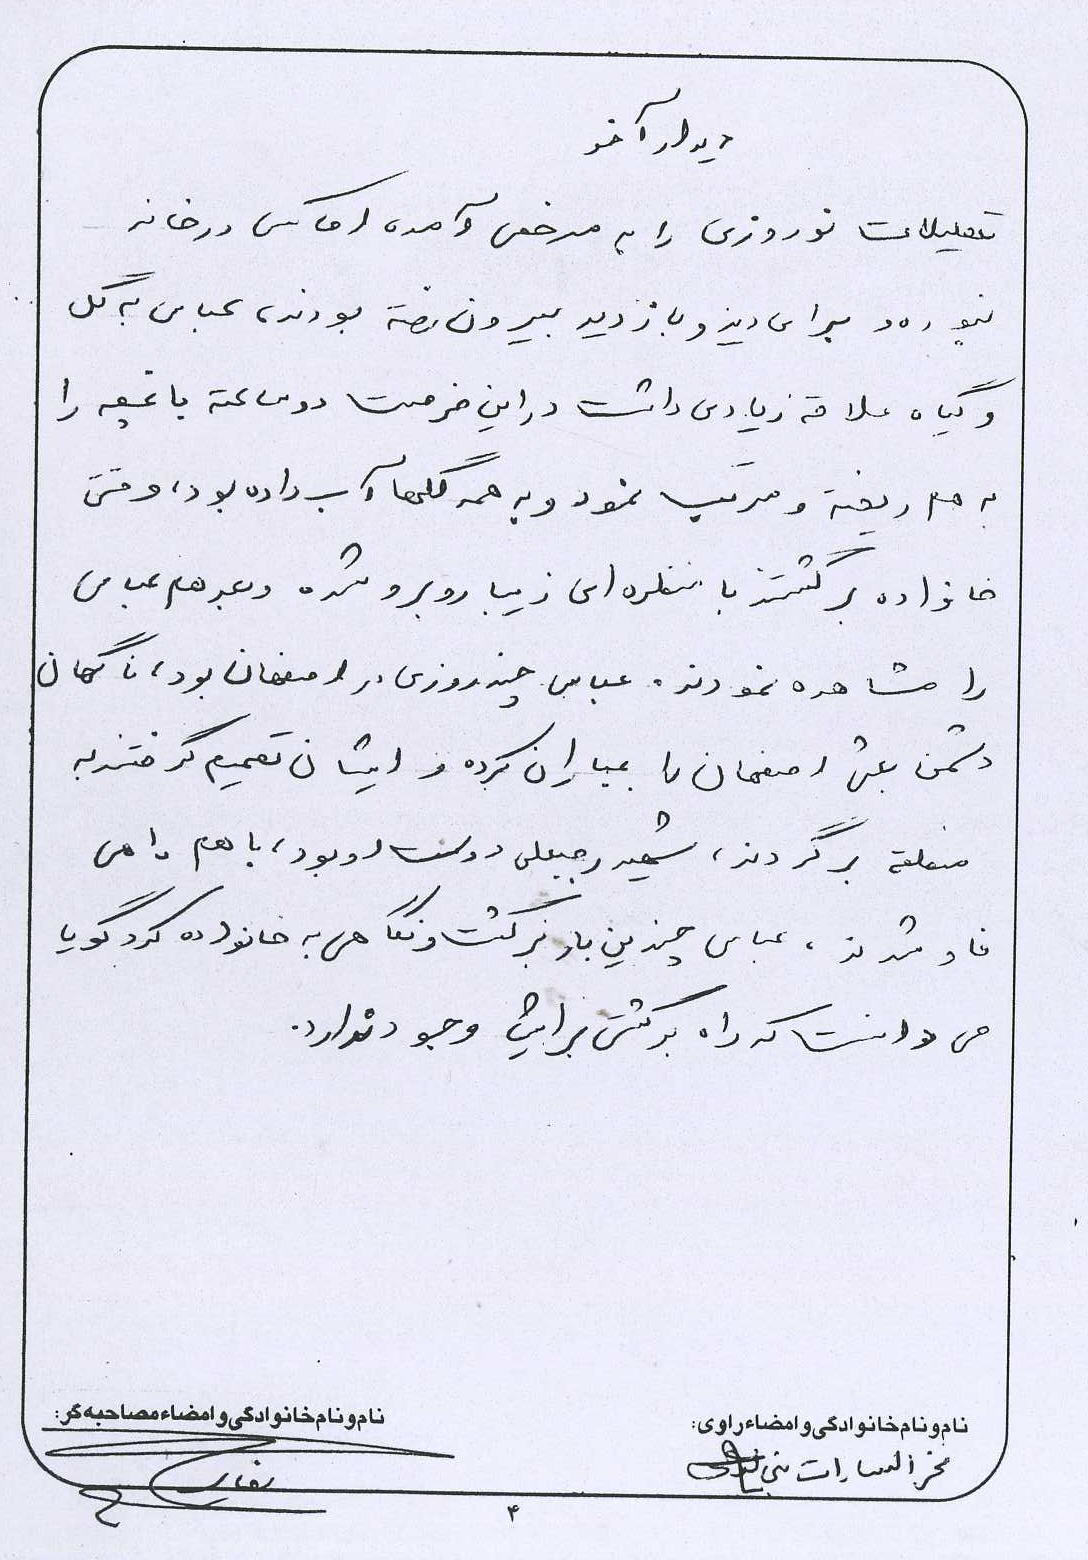 دیدار آخر
تعطیلات نوروزی را به مرخصی آمده، اما کسی در خانه
نبوده و برای دید و بازدید بیرون رفته بودند، عباس به گل
و گیاه علاقه زیادی داشت در این فرصت دو ساعته باغچه را
به هم ریخته و مرتب نمود و به همه گلها آب داده بود، وقتی
خانواده برگشتند با منظره ای زیبا روبرو شده و بعد هم عباس
را مشاهده نمودند. عباس چند روزی در اصفهان بود، ناگهان
دشمن بعثی اصفهان را بمباران کرده و ایشان تصمیم گرفتند به
منطقه برگردند، شهید رجبعلی دوست او بود، با هم راهی
فاو شدند، عباس چندین بار برگشت و نگاهی به خانواده کرد گویا
می دانست که راه برگشتی برایش وجود ندارد.
نام و نام خانوادگی و امضاء راوی:
فخرالسادات
نام و نام خانوادگی و امضاء مصاحبه گر:
۴